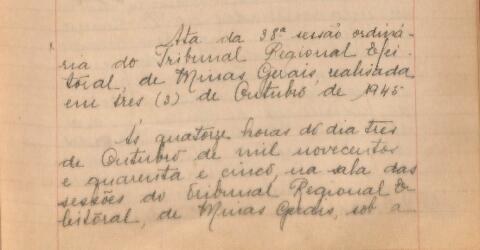 Ata da 38ª sessão ordiná-
ria do Tribunal Regional Elei-
toral, de Minas Gerais, realisada
em três (3) de Outubro de 1945
Ás quatorze horas do dia tres
de Outubro de mil novecentos
e quarenta e cinco, na sala das
sessões do Tribunal Regional E-
leitoral, de Minas Gerais, sob a